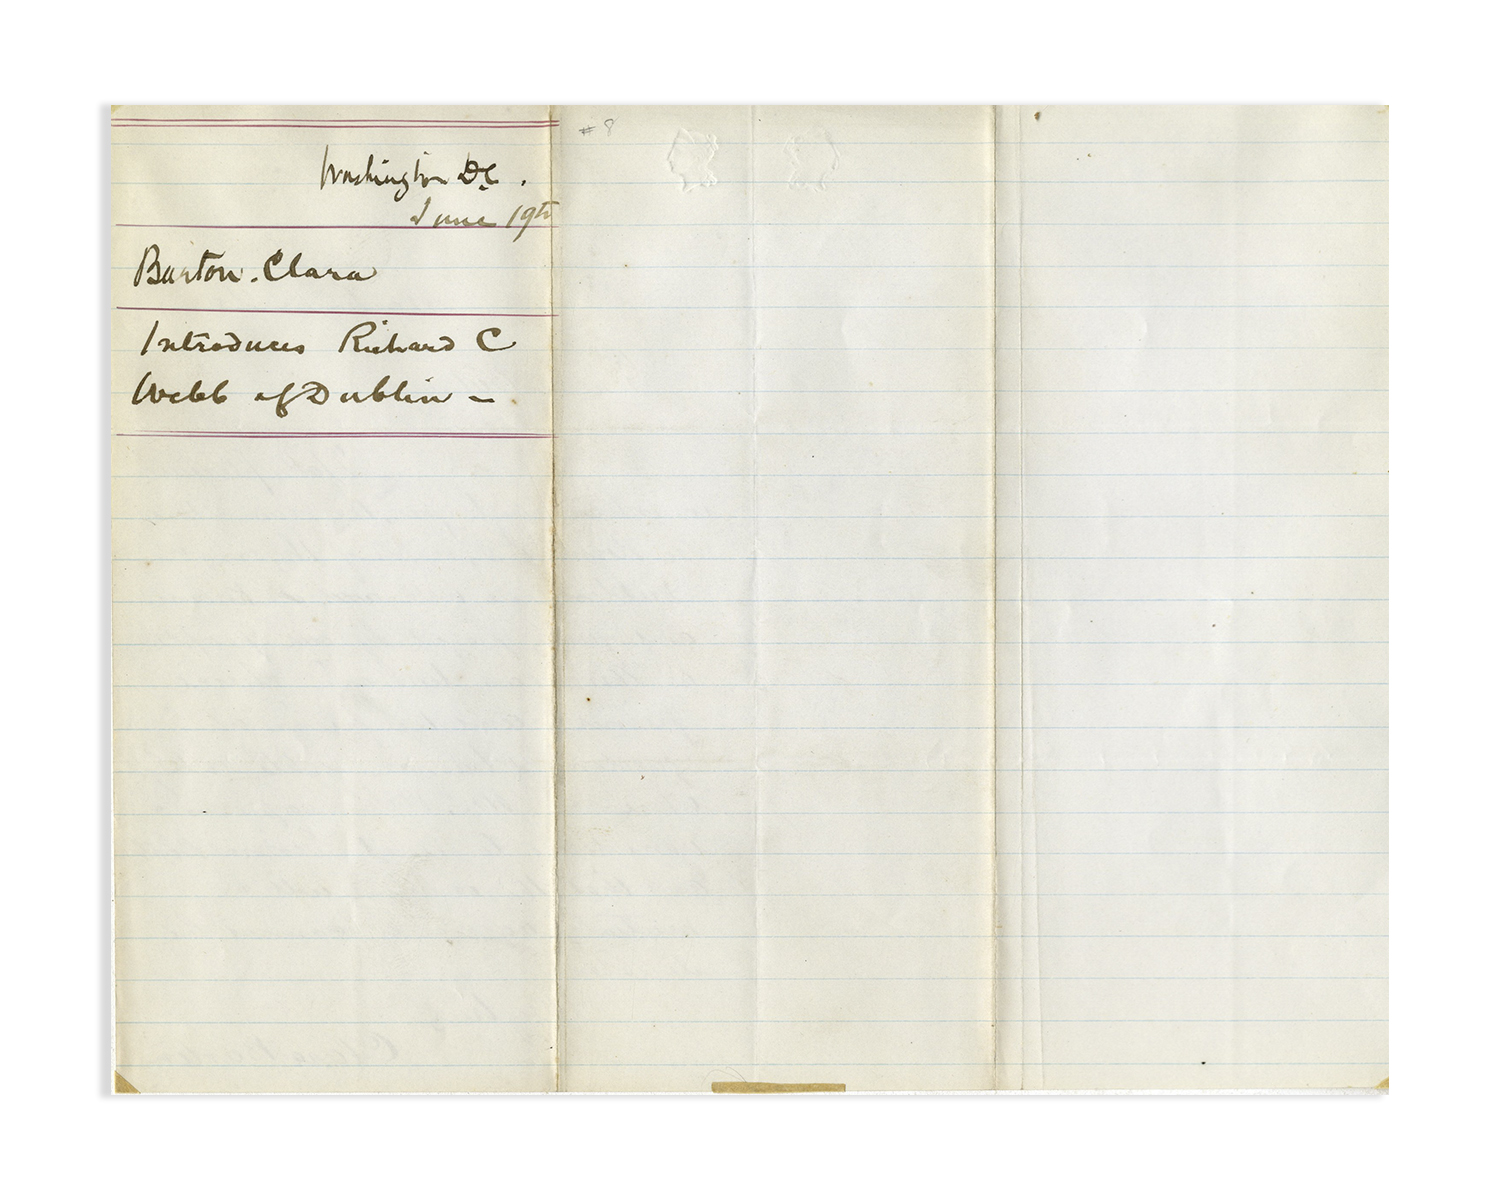 Washington D.C.
June 19th
Barton. Clara
Introduces Richard C
Webb of Dublin –
#8